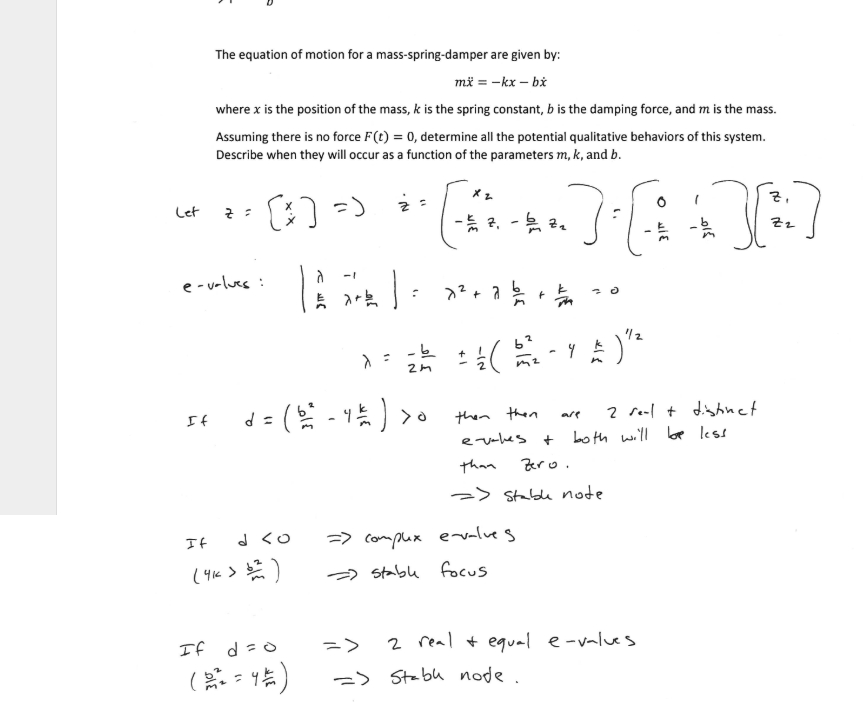 The equation of motion for a mass-spring-damper are given by:
mẍ = −kx − bẋ
where x is the position of the mass, k is the spring constant, b is the damping force, and m is the mass.
Assuming there is no force F(t) = 0, determine all the potential qualitative behaviors of this system.
Describe when they will occur as a function of the parameters m, k, and b.
Let z = [x; ẋ] => ż = [x₂; -k/m z₁ - b/m z₂] = [0 1; -k/m -b/m] [z₁; z₂]
e-values : |λ -1; k/m λ+b/m| = λ² + λ b/m + k/m = 0
λ = -b/2m ± 1/2 ( b²/m² - 4 k/m )^1/2
If d = ( b²/m - 4 k/m ) > 0 then then are 2 real + distinct
e-values + both will be less
than zero.
=> stable node
If d < 0 => complex e-values
(4k > b²/m) => stable focus
If d = 0 => 2 real + equal e-values
( b²/m² = 4 k/m ) => stable node.